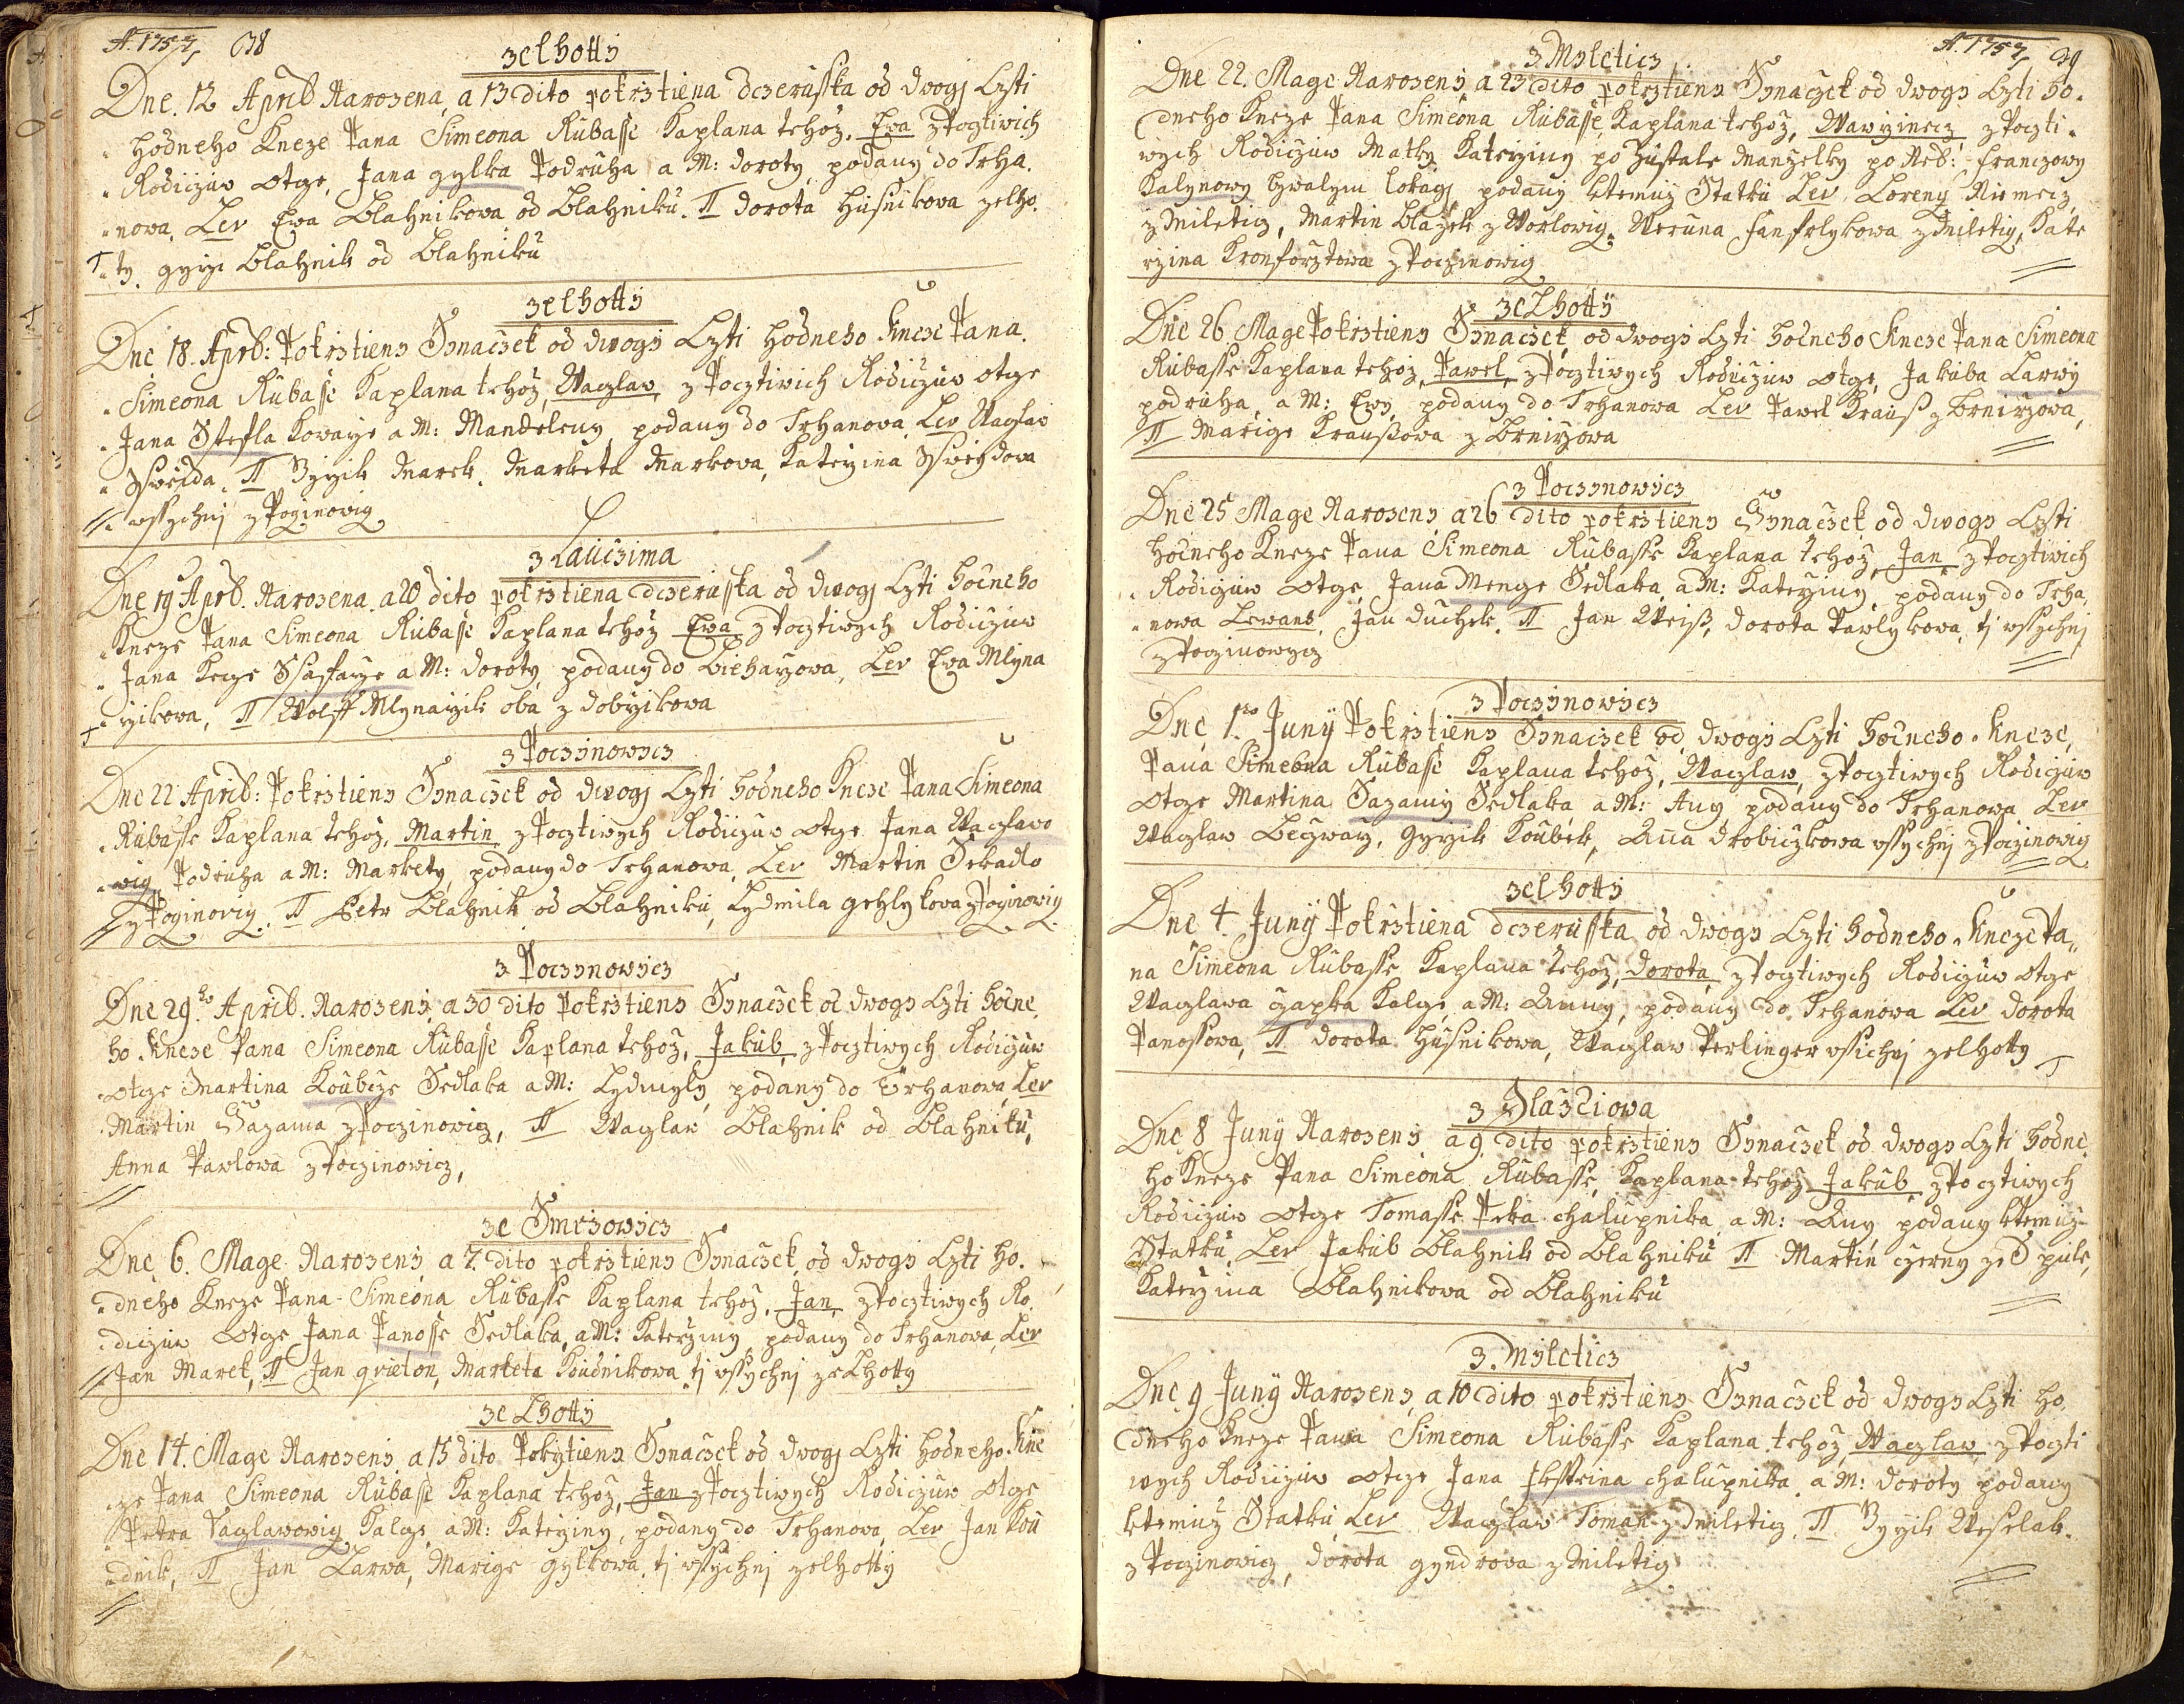 A. 1757, 38
zelhotty
Dne. 12 April Narozena, a 13 dito pokrztiena dczerusska od dwogj Czti
hodneho Kneze Pana Simeona Rubasse Kaplana tehoz. Ewa z Poctiwich
Rodiczuw otge, Jana gylka Podruha a M: doroty, podany do Trha.
nowa. Lev Ewa Blahnikowa od Blahniku. II dorota husnikowa zelho.
ty. gyrzi Blahnik od Blahniku
zelhotty
Dne 18. Aprb: Pokrztieny Synaczek od dwogi Czti hodneho Kneze Pana.
Simeona Rubasse Kaplana tehoz, Waczlaw z Pocztiwich Rodiczuw otge
Jana Steffla Kowarze a M: Mandeleny podany do Trhanowa. Lev Waczlaw
Sweida. II Irzik Marek, Marketa Markowa, Katerzina Sweydowa
wssychnj z Poczinowicz
z Lauczima
Dne 19 Aprb. Narozena. a 20 dito pokrztiena dczerusska od dwogj Czti hodneho
Kneze Pana Simeona Rubasse Kaplana tehoz Ewa z Pocztiwych Rodiczuw
Jana Kecze Ssaffarze a M: doroty, podany do Bieharzowa, Lev Ewa Mlyna
rzikowa, II Wolff Mlynarzik oba z dobrzikowa
z Poczynowicz
Dne 22 Aprib: Pokrztieny Synaczek od dwogj Czti hodneho Kneze Pana Simeona
Rubasse Kaplana tehoz, Martin z Pocztiwych Rodiczuw otge Jana Waczlawo
wicz Podruha a M: Markety, podany do Trhanowa, Lev Martin Sekadlo
z Poczinowicz. II Petr Blahnik od Blahniku, Lydmila gehlykowa z Poczinowicz
z Poczynowicz
Dne 29ho Aprib. Narozeny a 30 dito Pokrztieny Synaczek od dwogy Czti hodne.
ho Kneze Pana Simeona Rubasse Kaplana tehoz, Jakub z Pocztiwych Rodiczuw
otge Martina Koubcze Sedlaka a M: Lydmyly, podany do Trhanowa, Lev
Martin Sazama z Poczinowicz, II Waczlaw Blahnik od Blahniku,
Anna Pawlowa z Poczinowicz,
ze Smrzowicz
Dne 6. Mage Narozeny a 7. dito pokrztieny Synaczek od dwogi Czti ho.
dneho Kneze Pana Simeona Rubasse Kaplana tehoz, Jan z Pocztiwych Ro.
diczuw otge Jana Panosse Sedlaka, a M: Katerziny podany do Trhanowa, Lev
Jan Marek, II Jan grieton, Marketa Koudnikowa tj wssychnj ze Lhotty
ze Lhotty
Dne 14. Mage Narozeny a 15 dito Pokrztieny Synaczek od dwogj Czti hodneho Kne
ze Pana Simeona Rubasse Kaplana tehoz, Jan z Pocztiwych Rodiczuw otge
Petra Vaczlawowicz Kalcze a M: Katerziny, podany do Trhanowa, Lev Jan Kou
dnik, II Jan Larwa, Marige gylkowa, tj wssychnj zelhotty
A. 1757, 39
z Myleticz
Dne 22. Mage Narozeny a 23 dito pokrztieny Synaczek od dwogy Czti ho.
dneho Kneze Pana Simeona Rubasse Kaplana tehoz, Wawrzinecz z Poczti.
wych Rodiczuw Matky Katerziny po Zustale Manzelky po Neb: franczowy
Kalynowy bywalym Lokagi podany ktemuz Statku Lev Loreny Niemecz
z Miletig, Martin Blazek z Worlowig. Weruna fanfrlykowa z Miletig, Kate
rzina Kronforztowa z Poczinowig
ze Lhotty
Dne 26 Mage Pokrztieny Synaczek od dwogi Czti hodneho Kneze Pana Simeona
Rubasse Kaplana tehoz, Pawel z Pocztiwych Rodiczuw otge, Jakuba Larwy
podruha, a M: Ewy, podany do Trhanowa Lev Pawel Krauss z Brnirzowa,
II Marige Kraussowa z Brnirzowa
z Poczynowicz
Dne 25 Mage Narozeny a 26 dito pokrztieny Synaczek od dwogy Czti
hodneho Kneze Pana Simeona Rubasse Kaplana tehoz, Jan z Pocztiwich
Rodiczuw otge, Jana Menge Sedlaka, a M: Katerziny podany do Trha,
nowa Lewans, Jan duchek. II Jan Weiss, dorota Pawlykowa, tj wssychnj
z Poczinowycz
z Poczynowicz
Dne 1ho Juny Pokrztieny Synaczek od dwogi Czti hodneho Kneze,
Pana Simeona Rubasse Kaplana tehoz, Waczlaw, z Pocztiwych Rodiczuw
otge Martina Sazamy Sedlaka a M: Any podany do Trhanowa Lev
Waczlaw Beczwarz, Gyrzik Koubek, Anna drobiczkowa wssychnj z Poczinowig
zelhotty
Dne 4. Juny Pokrztiena dczerusska od dwogy Czti hodneho Kneze Pa,,
na Simeona Rubasse Kaplana tehoz, dorota, z Pocztiwych Rodiczuw otge
Waczlawa czapka Kalcze, a M: Anny, podany do Trhanowa Lev dorota
Panossowa, II dorota Husnikowa, Waczlaw Perlinger wssichnj zelhotty
z Slazdiowa
Dne 8 Juny Narozeny a 9 dito pokrztieny Synaczek od dwogy Czti hodne.
ho Kneze Pana Simeona Rubasse, Kaplana tehoz Jakub z Pocztiwych
Rodiczuw otge Tomasse Peka chalupnika a M: Any podany ktemuz
Statku, Lev Jakub Blahnik od Blahniku II Martin czerny ze S pule,
Katerzina Blahnikowa od Blahniku
z. Myleticz
Dne 9 Juny Narozeny a 10 dito pokrztieny Synaczek od dwogy Czti ho.
dneho Kneze Pana Simeona Rubasse Kaplana tehoz, Waczlaw z Poczti
wych Rodiczuw otge Jana chalupnika. a M: doroty podany
ktemuz Statku Lev Waczlaw Toman z Mileticz, II Irzik Weselak.
z Poczinowicz, dorota gyndrowa z Miletig